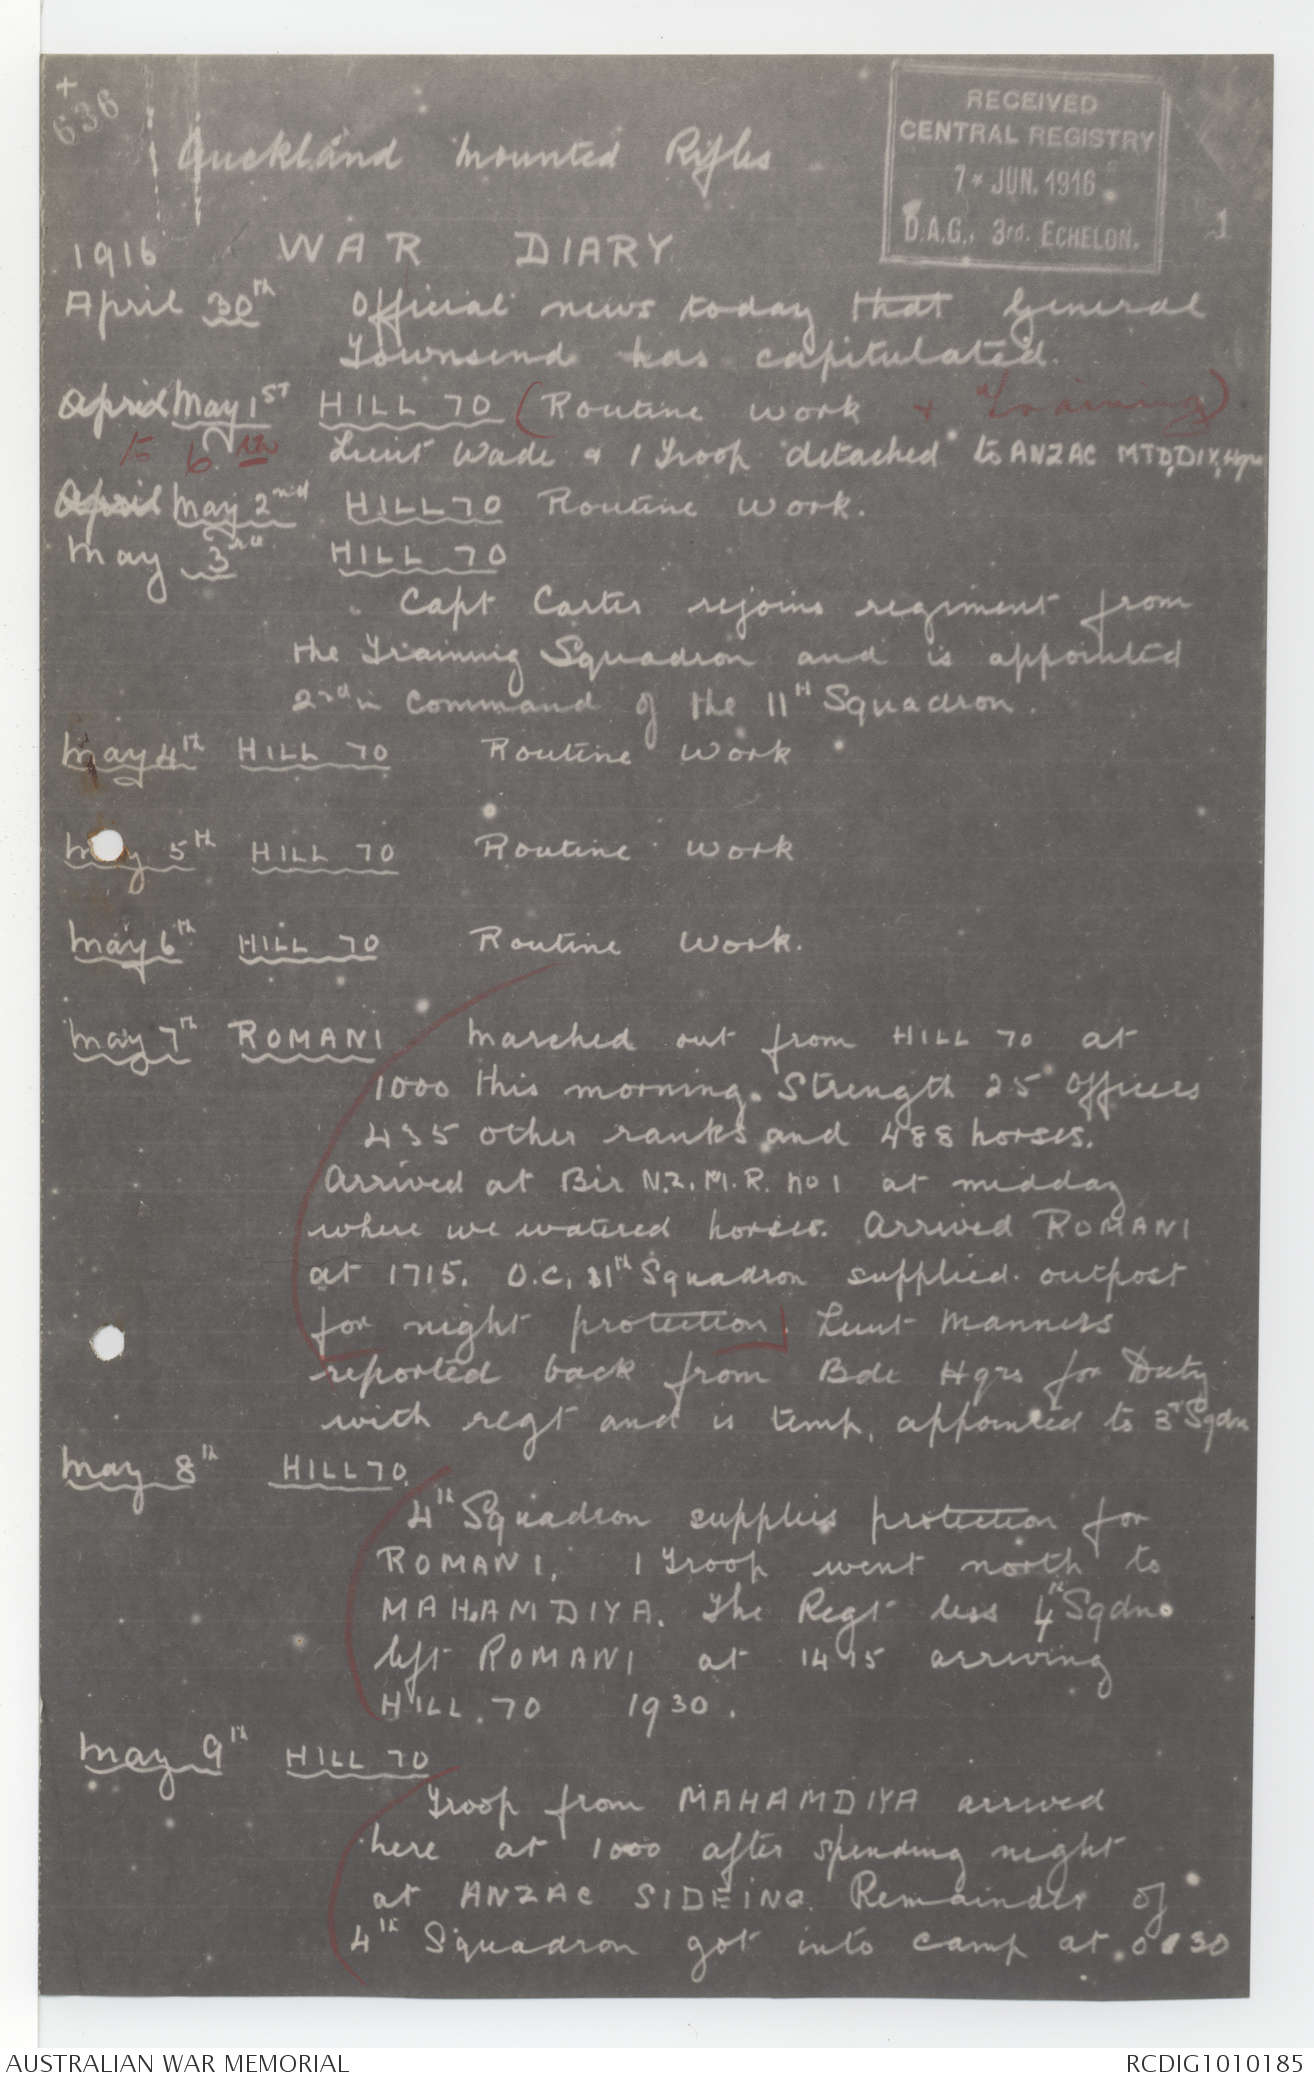 +
636
RECEIVED
CENTRAL REGISTRY
7* JUN. 1916
D.A.G., 3rd. ECHELON.
1
Auckland Mounted Rifles
1916 WAR DIARY
April 30th Official news today that General
Townsend has capitulated.
April May 1st HILL 70 (Routine work + Training)
to 6th Lieut Wade & 1 Troop detached to ANZAC MTD, DIV, Hqrs
April May 2nd HILL 70 Routine work.
May 3rd HILL 70
Capt Carter rejoins regiment from
the Training Squadron and is appointed
2nd in Command of the 11th Squadron.
May 4th HILL 70 Routine work
May 5th HILL 70 Routine work
May 6th HILL 70 Routine work.
May 7th ROMANI Marched out from HILL 70 at
1000 this morning. Strength 25 Officers
435 other ranks and 488 horses.
Arrived at Bir N.Z.M.R. no 1 at midday
where we watered horses. Arrived ROMANI
at 1715. O.C. 11th Squadron supplied outpost
for night protection. Lieut Manners
reported back from Bde Hqrs for Duty
with regt and is temp, appointed to 3rd Sqdn
May 8th HILL 70.
4th Squadron supplies protection for
ROMANI. 1 Troop went north to
MAHAMDIYA. The Regt less 4th Sqdn
left ROMANI at 1415 arriving
HILL 70 1930.
May 9th HILL 70
Troop from MAHAMDIYA arrived
here at 1000 after spending night
at ANZAC SIDEING. Remainder of
4th Squadron got into camp at 0130
AUSTRALIAN WAR MEMORIAL
RCDIG1010185